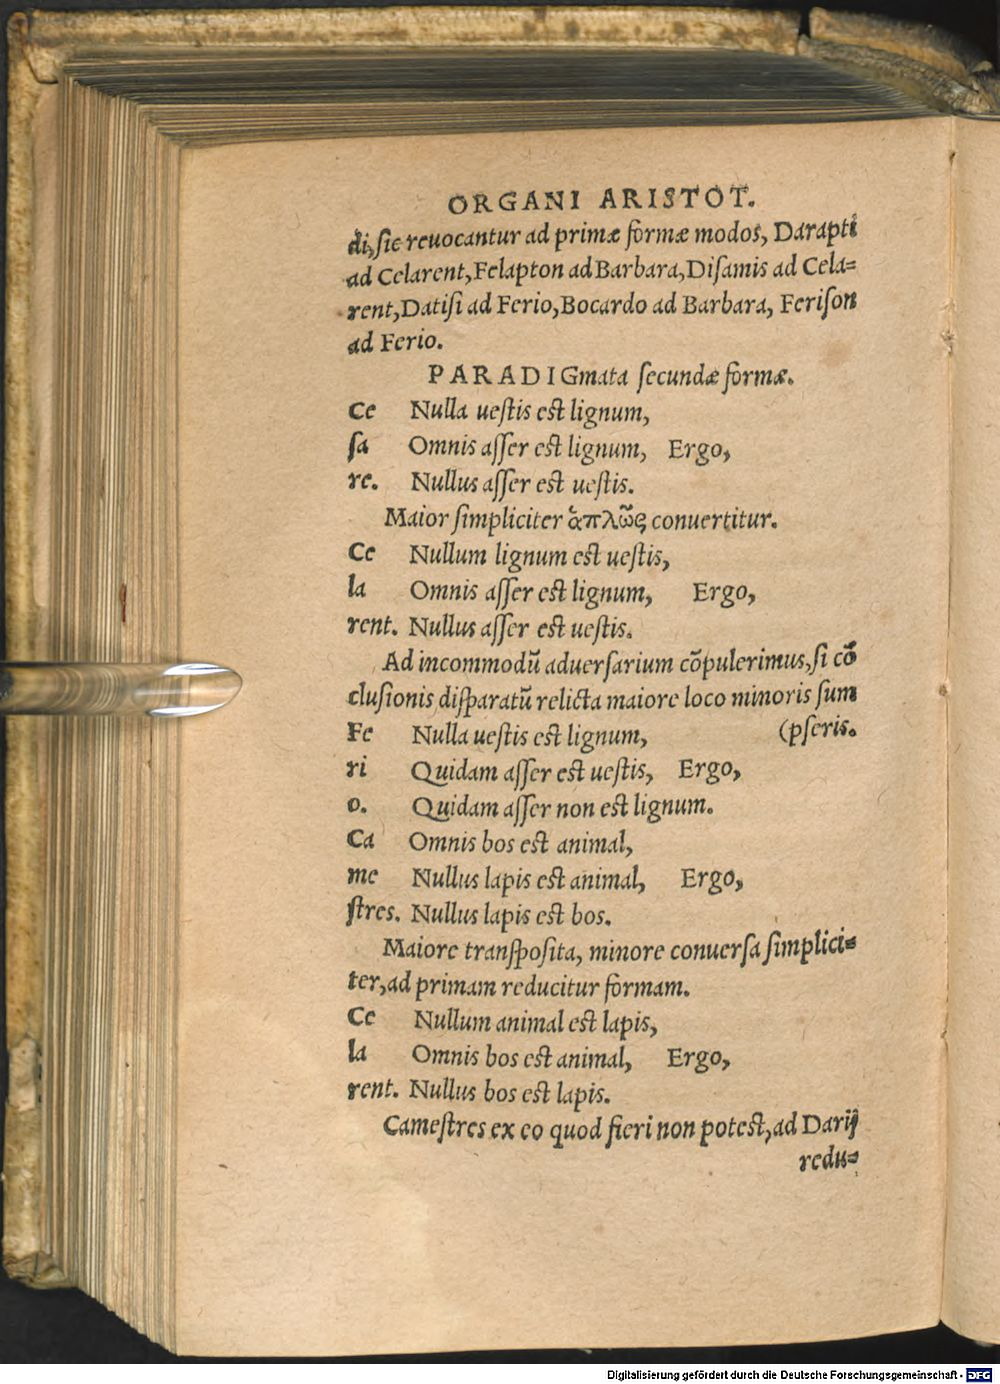 ORGANI ARISTOT.
di, sic reuocantur ad primæ formæ modos, Darapti
ad Celarent, Felapton ad Barbara, Disamis ad Cela=
rent, Datisi ad Ferio, Bocardo ad Barbara, Ferison
ad Ferio.
PARADIGmata secundæ formæ.
Ce Nulla uestis est lignum,
sa Omnis asser est lignum, Ergo,
re. Nullus asser est uestis.
Maior simpliciter ἁπλῶς conuertitur.
Ce Nullum lignum est uestis,
la Omnis asser est lignum, Ergo,
rent. Nullus asser est uestis.
Ad incommodũ aduersarium cõpulerimus, si cõ
clusionis disparatũ relicta maiore loco minoris sum
Fe Nulla uestis est lignum, (pseris.
ri Quidam asser est uestis, Ergo,
o. Quidam asser non est lignum.
Ca Omnis bos est animal,
me Nullus lapis est animal, Ergo,
stres. Nullus lapis est bos.
Maiore transposita, minore conuersa simplici=
ter, ad primam reducitur formam.
Ce Nullum animal est lapis,
la Omnis bos est animal, Ergo,
rent. Nullus bos est lapis.
Camestres ex eo quod fieri non potest, ad Darij
redu=
Digitalisierung gefördert durch die Deutsche Forschungsgemeinschaft - DFG